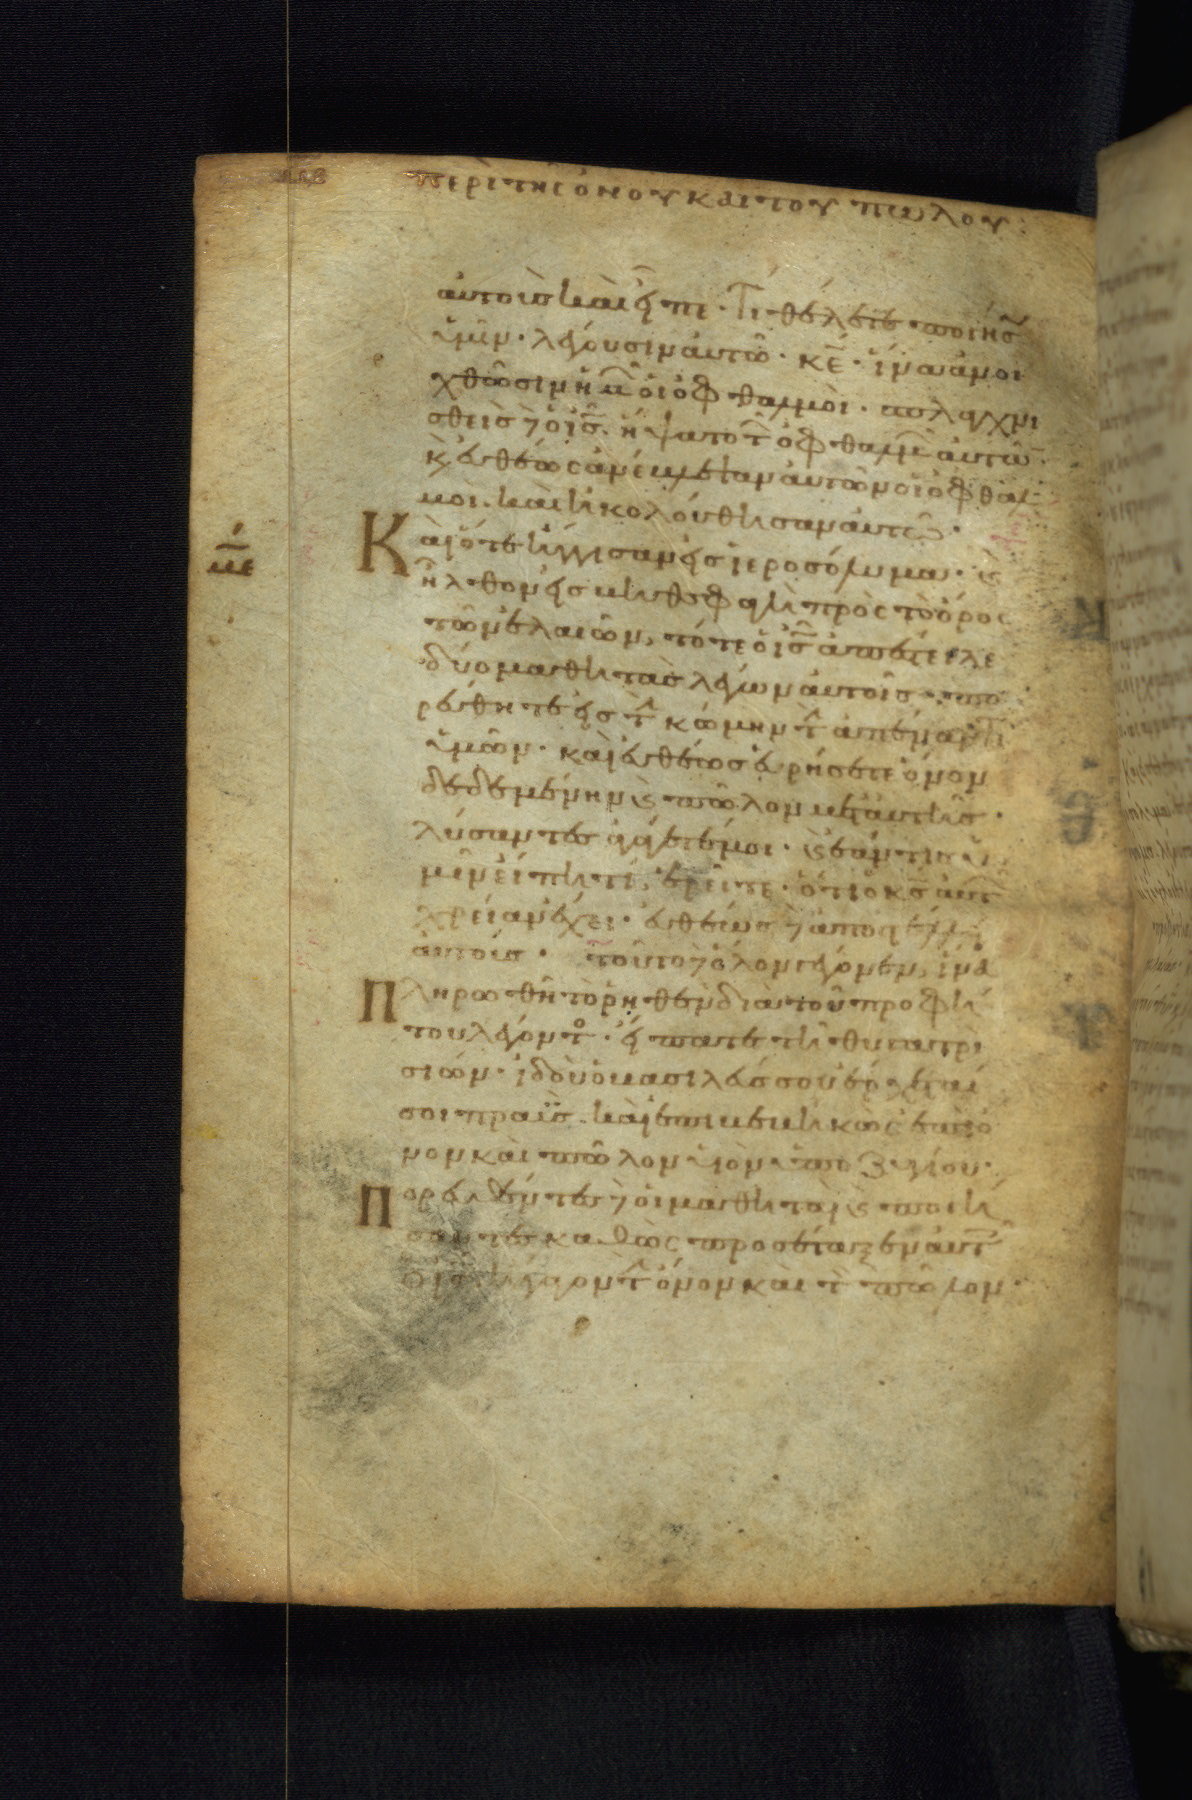 περὶ τῆς ὄνου καὶ τοῦ πώλου:
αυτοὺς καὶ εἶπε· Τί θέλετε ποιήσω
ὑμῖν· λέγουσιν αὐτῶ· κε̄· ἵνα ἀνοι
χθῶσιν ἡμῶν οἱ ὀφθαλμοί· σπλαγχνι
σθεὶς δὲ ὁ ις̄· ἥψατο τῶν ὀφθαλμῶν αὐτῶν·
κ(αὶ) εὐθέως ἀνέβλεψαν αὐτῶν οἱ ὀφθαλ
μοί· καὶ ἠκολούθησαν αὐτῶ·
με̄
Καὶ ὅτε ἤγγισαν εἰς ἱεροσόλυμα· κ(αὶ)
ἦλθον εἰς βηθσφαγῆ πρὸς τὸ ὄρος
τῶν ἐλαιῶν, τότε ὁ ις̄ ἀπέστειλε
δύο μαθητὰς λέγων αὐτοῖς· πο
ρεύθητε εἰς τὴν κώμην τὴν ἀπέναντι
ὑμῶν· καὶ εὐθέως εὑρήσετε ὄνον
δεδεμένην κ(αὶ) πῶλον μετ' αὐτῆς·
λύσαντες ἀγάγετέ μοι· κ(αὶ) ἐάν τις ὑ
μῖν εἴπη τί, ἐρεῖτε· ὅτι ὁ κς̄ αὐτῶν
χρείαν ἔχει· εὐθέως δὲ ἀποστέλλει
αὐτούς· τοῦτο δὲ ὅλον γέγονεν, ἵνα
Πληρωθῆ τὸ ῥηθὲν διὰ τοῦ προφή
του λέγοντος· εἴπατε τῆ θυγατρὶ
σιών· ἰδοὺ ὁ βασιλεύς σου ἔρχεταί
σοι πραΰς· καὶ ἐπιβεβηκὼς ἐπὶ ὄ
νον καὶ πῶλον υἱὸν ὑποζυγίου·
Πορευθέντες δὲ οἱ μαθηταὶ κ(αὶ) ποιή
σαντες καθὼς προσέταξεν αὐτοῖς
ὁ ις̄ ἤγαγον τὴν ὄνον καὶ τὸν πῶλον·